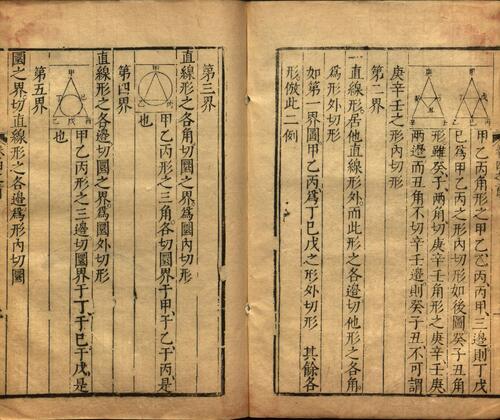 丙角形之甲乙乙丙丙甲三邊則丁戊
己爲甲乙丙之形內切形如後圖癸子丑角
形雖癸子兩角切庚辛壬角形之庚辛壬庚
兩邊而丑角不切辛壬邊則癸子丑不可謂
庚辛壬之形內切形
第二界
直線形居他直線形外而此形之各邊切他形之各角
爲形外切形
如第一界圖甲乙丙爲丁己戊之形外切形 其餘各
形倣此二例
第三界
直線形之各角切圜之界爲圜內切形
甲乙丙形之三角各切圜界于甲于乙于丙是
也
第四界
直線形之各邊切圜之界爲圜外切形
甲乙丙形之三邊切圜界于丁于己于戊是
也
第五界
圜之界切直線形之各邊爲形內切圜